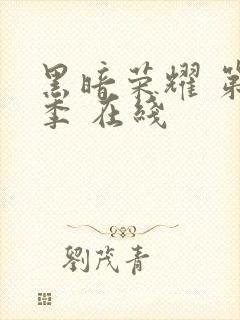 黑暗荣耀 第
季 在线
劉茂青